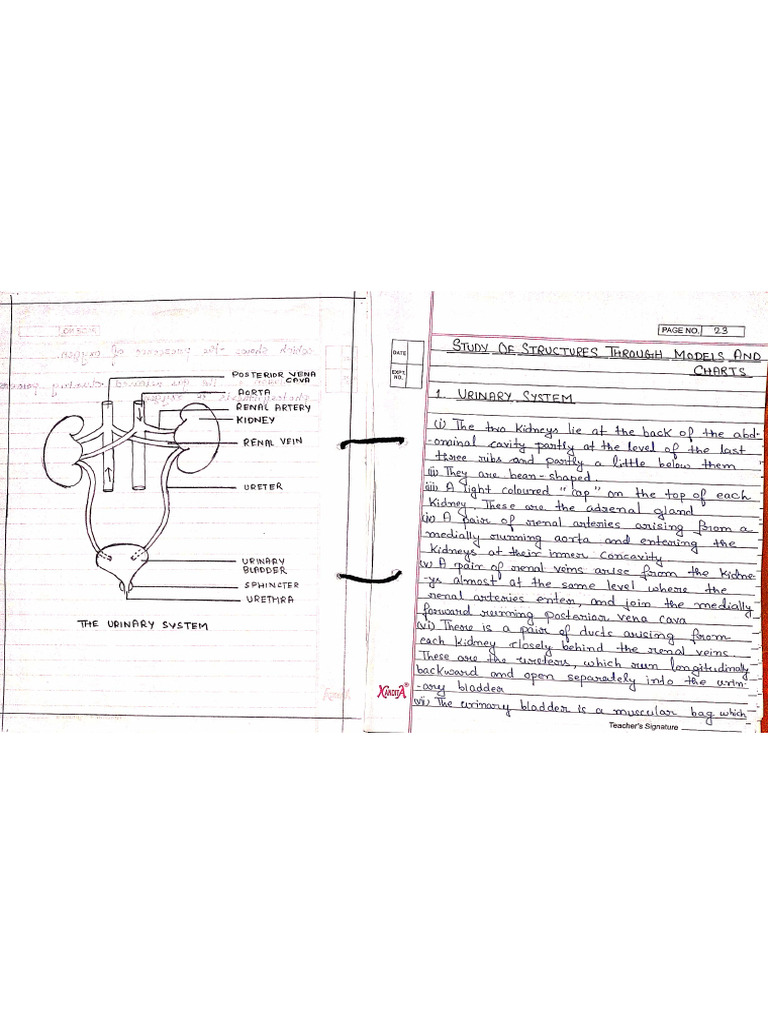 which shows the presence of oxygen.
POSTERIOR VENA
CAVA
AORTA
RENAL ARTERY
KIDNEY
RENAL VEIN
URETER
URINARY
BLADDER
SPHINCTER
URETHRA
THE URINARY SYSTEM
PAGE NO. 23
DATE
EXPT.
NO.
STUDY OF STRUCTURES THROUGH MODELS AND
CHARTS
1. URINARY SYSTEM
(i) The two kidneys lie at the back of the abd-
-ominal cavity partly at the level of the last
three ribs and partly a little below them
(ii) They are bean-shaped.
(iii) A light coloured "cap" on the top of each
Kidney. These are the adrenal gland
(iv) A pair of renal arteries arising from a
medially running aorta and entering the
kidneys at their inner concavity
(v) A pair of renal veins arise from the kidne-
-ys almost at the same level where the
renal arteries enter, and join the medially
forward running posterior vena cava
(vi) There is a pair of ducts arising from
each kidney closely behind the renal veins.
These are the ureters, which run longitudinally
backward and open separately into the urin-
-ary bladder
(vii) The urinary bladder is a muscular bag which
XANDITA®
Teacher's Signature